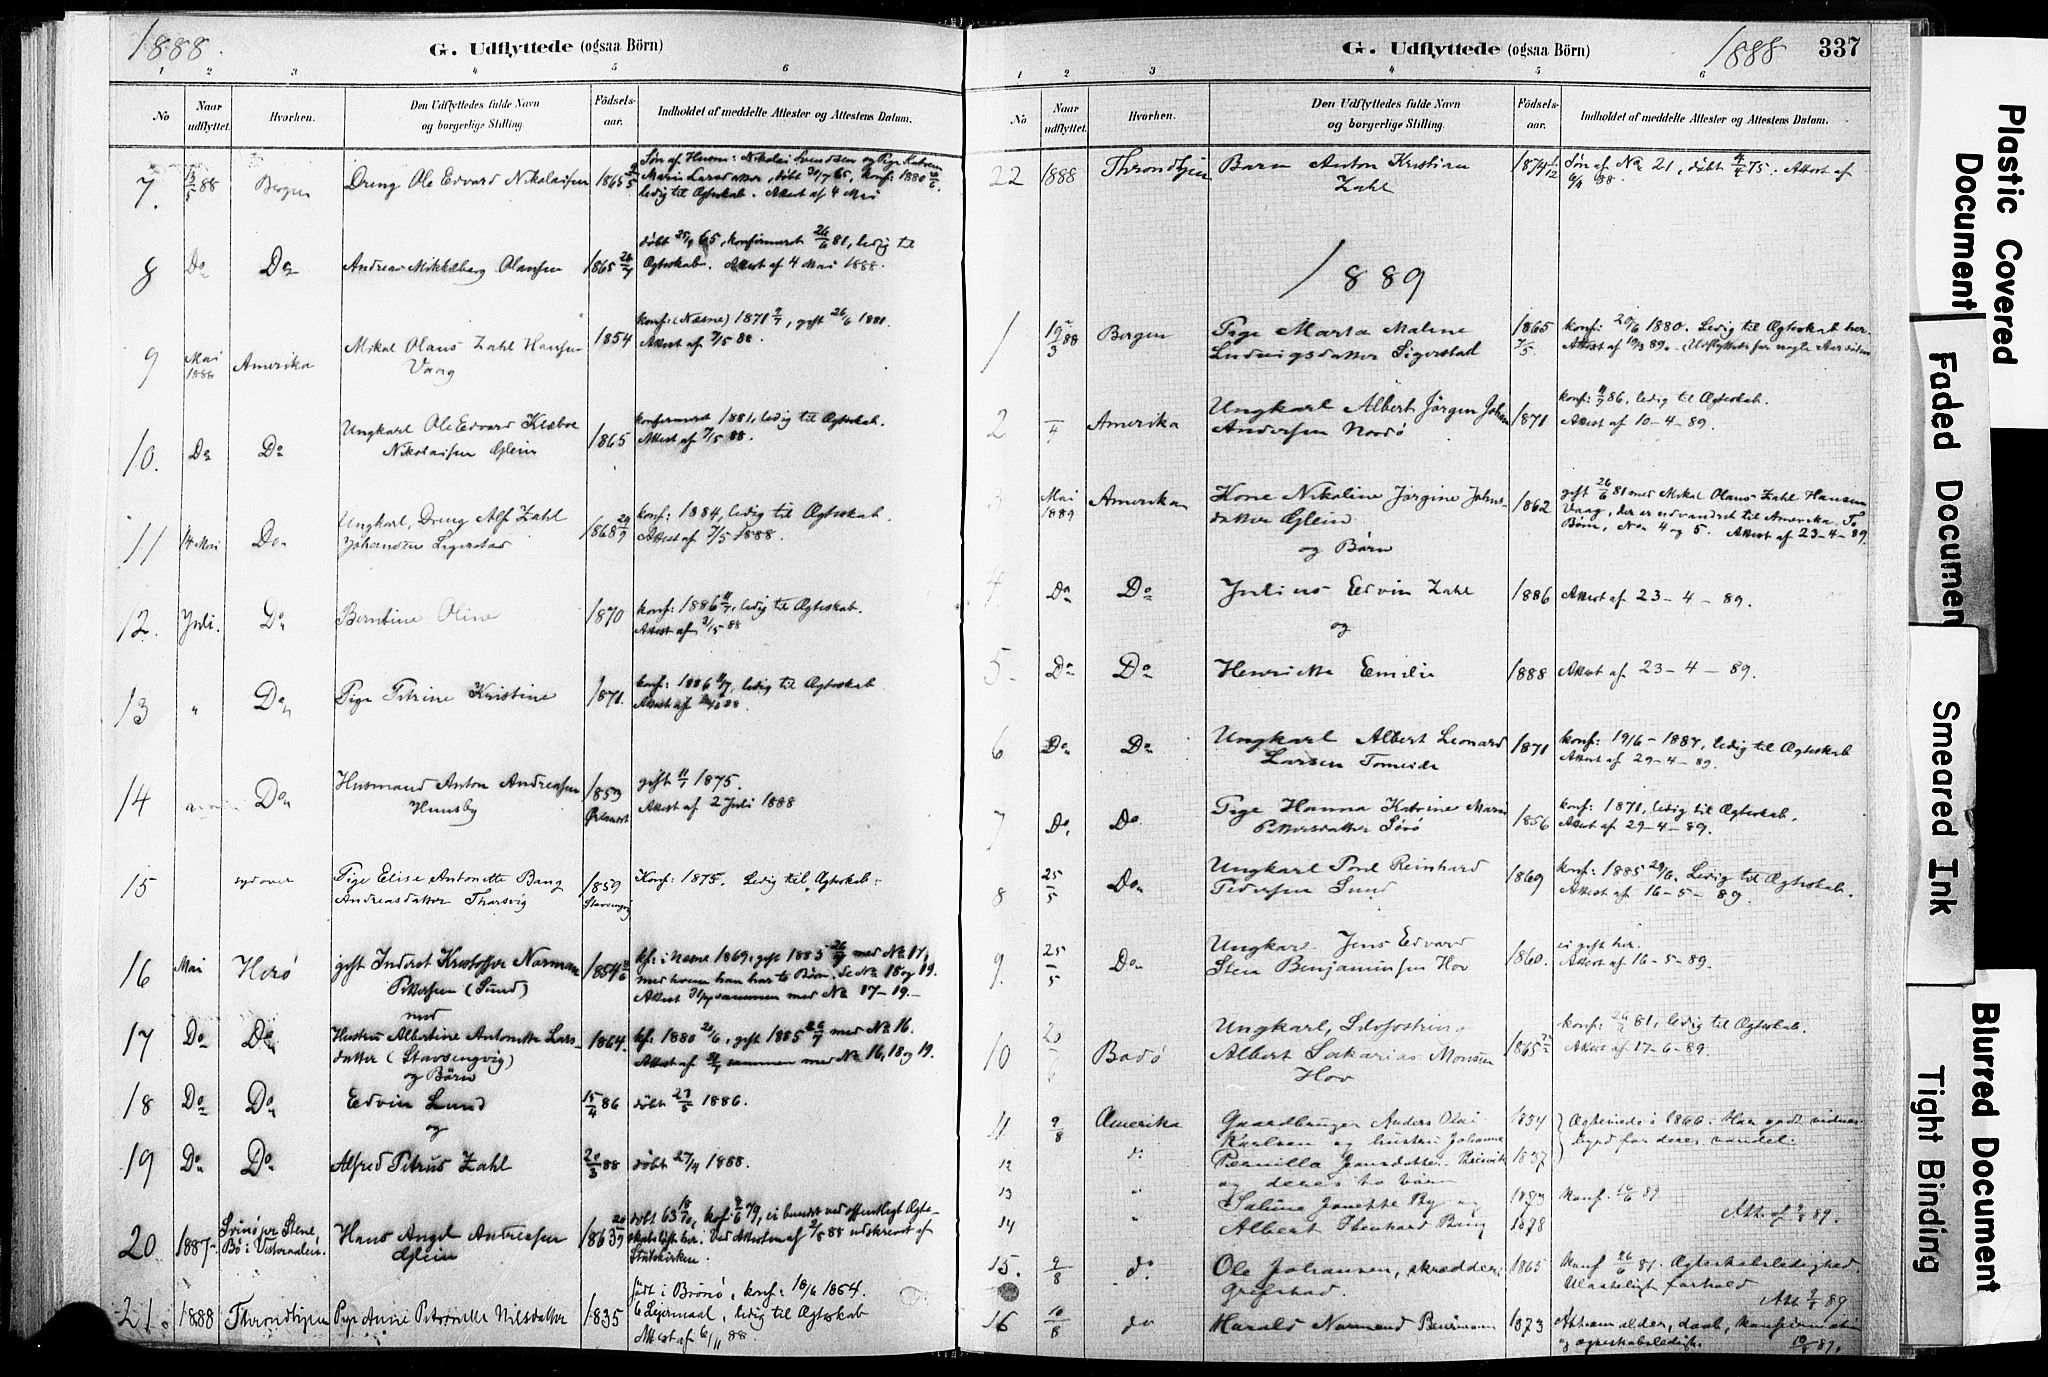 1888.
G. Udflyttede (ogsaa Börn)
1 2 3 4 5 6
No
Naar udflyttet.
Hvorhen.
Den Udflyttedes fulde Navn og borgerlige Stilling
Födsels-aar.
Indholdet af meddelte Attester og Attestens Datum.
7. 13/5 88 Bergen Dreng Ole Edvard Nikolaisen 1865
Søn af Husm: Nikolai Svendsen og Pige Katrine
Maria Larsdatter, døbt 30/7 65, konf: 1880
ledig til Ægteskab. Attest af 4 Mai
8 Do Do Andreas Mikkelborg Olaussen 1865
døbt 65, konfirmeret 26/6 81, ledig til
Ægteskab. Attest af 4 Mai 1888.
9 Mai 1888 Amerika Mikal Olaus Zahl Hansen 1854
Vaag
konf: (Næsne) 1871, gift 26/6 1881.
Attest af 7/5 88.
10. Do Do Ungkarl Ole Edvard Klæboe 1865
Nikolaisen Glein
konfirmeret 1881, ledig til Ægteskab.
Attest af 7/5 88.
11 14 Mai Do Ungkarl, Dreng Alf Zahl 1868 29/9
Johansen Sigerstad
konf: 1884, ledig til Ægteskab.
Attest af 7/5 1888.
12. Juli. Do Berntine Oline 1870
konf: 1886, ledig til Ægteskab.
Attest af 88
13 " Do Pige Petrine Kristine 1871.
konf: 1886 11/7, ledig til Ægteskab
Attest af 88
14 Do Husmand Anton Andreassen 1853
Hunsby
gift 1875.
Attest af 2 Juli 1888
15 sydover Pige Elise Antonette Bang 1859
Andreasdatter Tharsvig Stavsengvig
Konf: 1875. Ledig til Ægteskab.
16 Mai Herø gift Inderst Kristoffer Norman 1854
Pettersen (Sund)
med
kf: i Nesne 1869, gift 1885 26/7 med No 17,
med hvem han har to Børn. Se No 18 og 19.
Attest sammen med No 17-19.
17 Do Do Hustru Albertine Antonette Lars- 1864.
datter (Stavsengvig)
og Börn
kf: 1880, gift 1885 26/7 med No 16.
Attest af sammen med No 16, 18 og 19.
18 Do Do Edvin Lund 15/4 86 døbt 23/5 1886.
og
19 Do Do Alfred Petrus Zahl 20/3 88 døbt 27/4 1888.
20. 1887 Bø i Vesteraalen. Hans Angel Andreassen 1863
Glein
døbt 63, kof: 79, ei bundet ved offentligt Ægte-
skabsløfte her. Ved Attesten af 2/5 88 udskrevet af
Statskirken.
21. 1888 Throndhjem Pige Anne Petronille Nilsdatter 1835
født i Brønø, konf: 18/6 1854.
6 Leiermaal, ledig til Ægteskab
Attest af 6/11 88
G. Udflyttede (ogsaa Börn)
1888
337
1 2 3 4 5 6
No
Naar udflyttet.
Hvorhen.
Den Udflyttedes fulde Navn og borgerlige Stilling.
Födsels-aar.
Indholdet af meddelte Attester og Attestens Datum.
22 1888 Throndhjem Barn Anton Kristian 1874 1/12
Zahl
Søn af No 21, døbt 4/4 75. Attest af
6/11 88.
1889
1 19/3 88 Bergen Pige Marta Malene 1865
Ludvigsdatter Sigerstad 7/5.
konf: 20/6 1880. Ledig til Ægteskab her.
Attest af 19/3 89. (Udflyttede for nogle Aar siden
2 /4 Amerika Ungkarl Albert Jörgen Johan 1871
Andersen Nordö
konf: 86, ledig til Ægteskab.
Attest af 10-4-89.
3 Mai 1889 Amerika Kone Nikoline Jörgine Johns- 1862
datter Glein
og Børn
gift 26/6 81 med Mikal Olaus Zahl Hansen
Vaag, der er udvandret til Amerika. To
Børn, No 4 og 5. Attest af 23-4-89.
4. Do Do Julius Edvin Zahl 1886 Attest af 23-4-89.
og
5. Do Do Henriette Emilie 1888 Attest af 23-4-89.
6 Do Do Ungkarl Albert Leonard 1871
Larsen Tomeide
konf: 19/6-1887, ledig til Ægteskab
Attest af 29-4-89.
7 Do Do. Pige Hanna Katrine Marie 1856
Pettersdatter Sørø
konf: 1871, ledig til Ægteskab.
Attest af 29-4-89.
8 25/5 Do Ungkarl Povl Reinhard 1869
Pedersen Sund
konf: 1885 29/6. Ledig til Ægteskab.
Attest af 16-5-89.
9. 25/5 Do Ungkar Jens Edvard 1860.
Sten Benjaminsen Hov
ei gift her.
Attest af 16-5-89.
10 20/6 Bodö Ungkarl,
Albert Sakarias Monsen 1865
Hov
konf: 81, ledig til Ægteskab.
Attest af 17-6-89.
11 9/8 Amerika Gaardbruger Anders Olai 1834
Karlsen og hustru Johanne
12 do Pernilla Jonsdatter 1837
og deres to børn
Ægteviede i 1866. Har godt vidnes-
byrd for deres vandel.
13 " og Konf. 89
14 " Albert Bang 1878
Att. af 89.
15. 9/8 do Ole Johansen, skrædder 1865
Konf 26/6 81. Ægteskabsledighed.
forhold
Att 89
16 10/8 do Harald Normand 1873
alder, daab, konfirmation
og ægteskabsledigh. 10/8 89.
Plastic Covered Document
Faded Documen
Smeared Ink
Blurred Document
Tight Binding